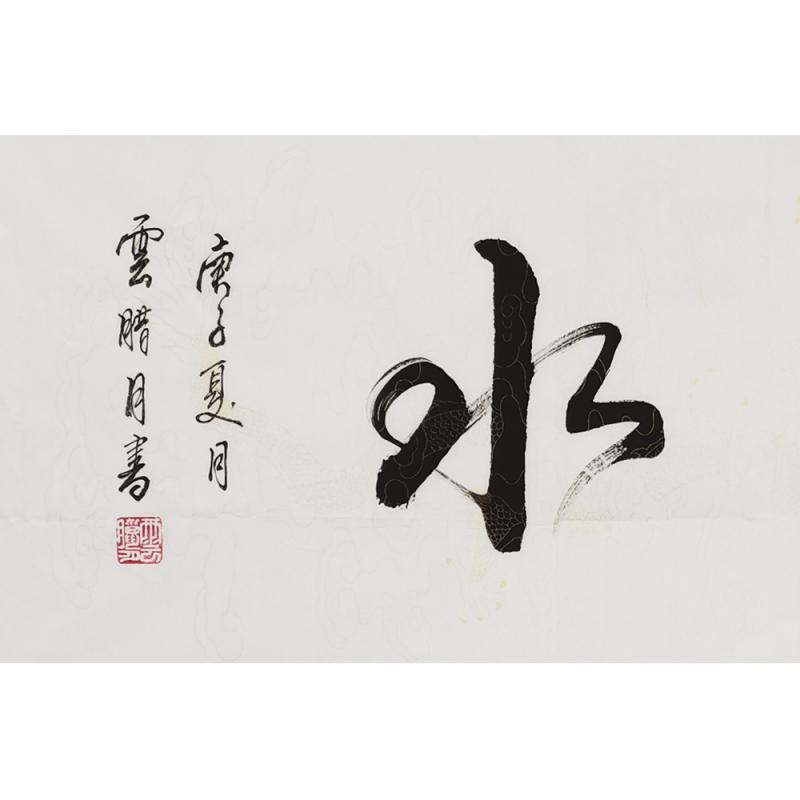 水
庚子夏月
雲腊月書